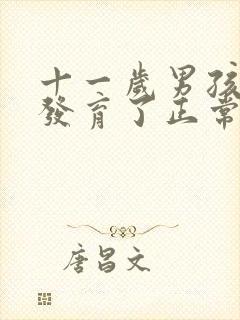 十一歲男孩
發育了正常
唐昌文